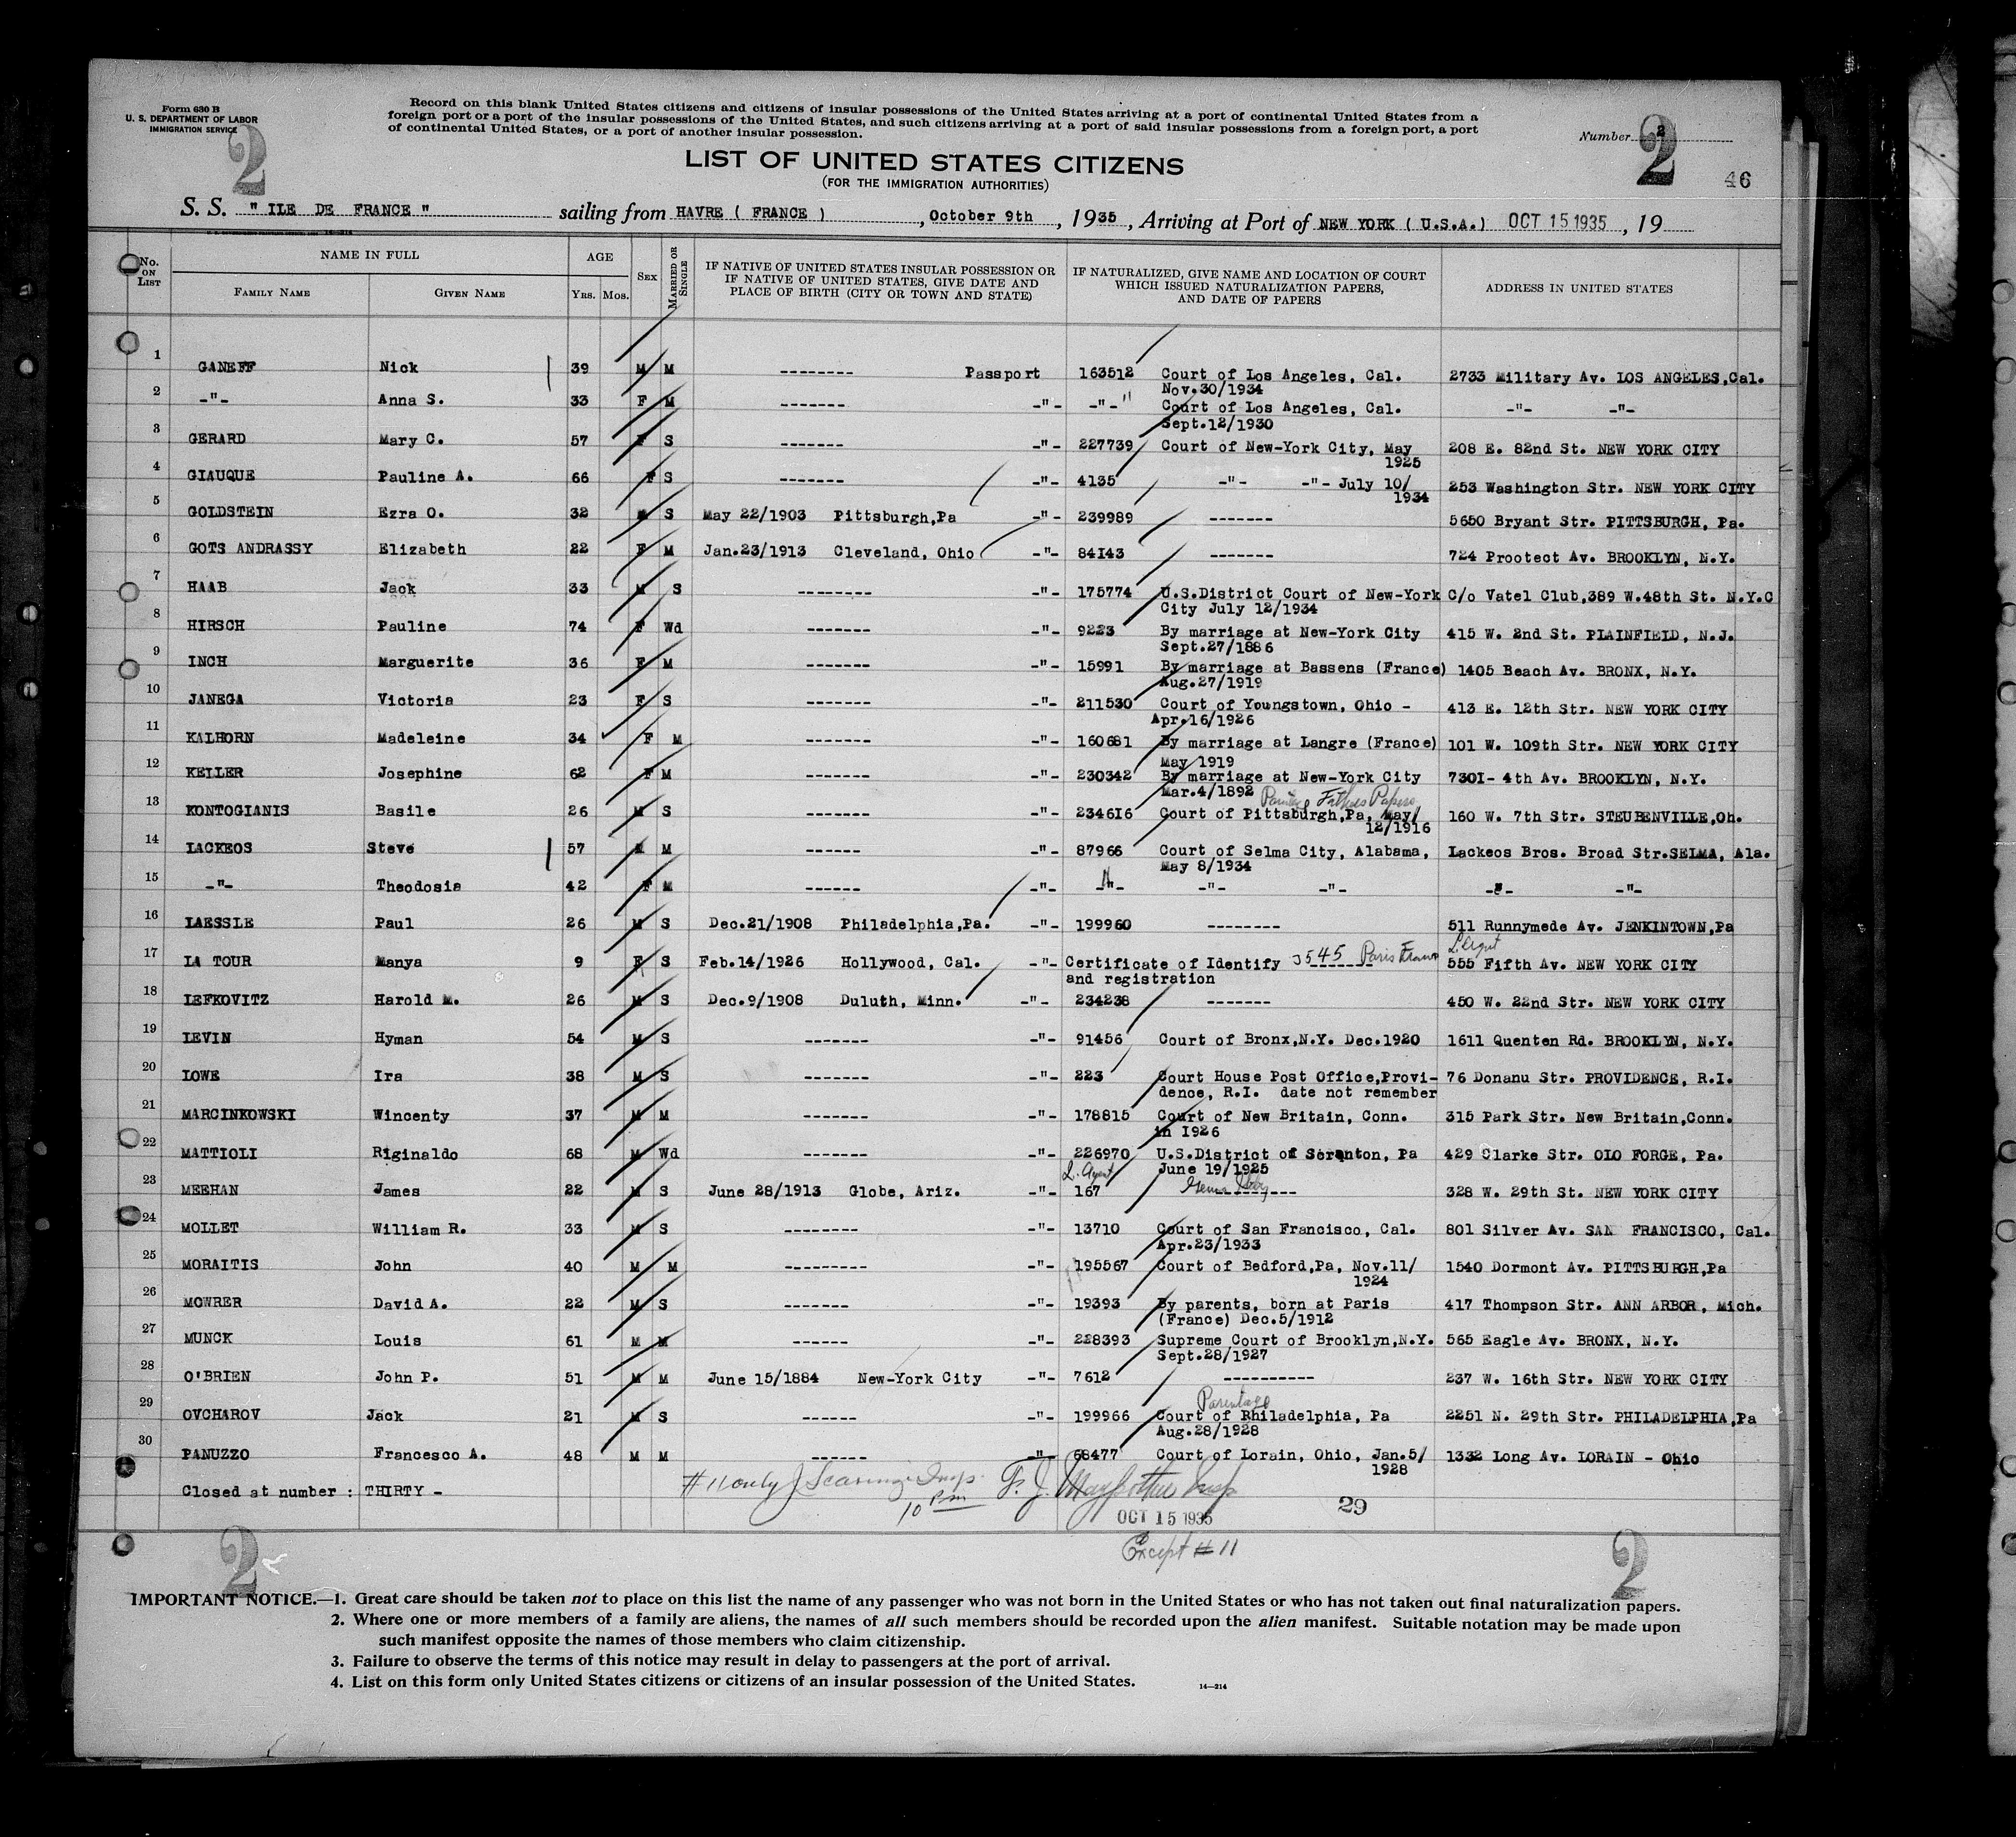 Form 630 B
U. S. DEPARTMENT OF LABOR
IMMIGRATION SERVICE
2
Record on this blank United States citizens and citizens of insular possessions of the United States arriving at a port of continental United States from a
foreign port or a port of the insular possessions of the United States, and such citizens arriving at a port of said insular possessions from a foreign port, a port
of continental United States, or a port of another insular possession.
Number 2
2
46
LIST OF UNITED STATES CITIZENS
(FOR THE IMMIGRATION AUTHORITIES)
S. S. " ILE DE FRANCE " sailing from HAVRE ( FRANCE ), October 9th, 1935, Arriving at Port of NEW YORK ( U.S.A.) OCT 15 1935, 19
No. ON LIST
NAME IN FULL
FAMILY NAME GIVEN NAME
AGE
YRS. MOS.
SEX
MARRIED OR SINGLE
IF NATIVE OF UNITED STATES INSULAR POSSESSION OR
IF NATIVE OF UNITED STATES, GIVE DATE AND
PLACE OF BIRTH (CITY OR TOWN AND STATE)
IF NATURALIZED, GIVE NAME AND LOCATION OF COURT
WHICH ISSUED NATURALIZATION PAPERS,
AND DATE OF PAPERS
ADDRESS IN UNITED STATES
1 GANEFF Nick 39 M M -------- Passport 163512 Court of Los Angeles, Cal. 2733 Military Av. LOS ANGELES,Cal.
Nov.30/1934
2 -"- Anna S. 33 F M ------- -"- -"- " Court of Los Angeles, Cal. -"- -"-
Sept.12/1930
3 GERARD Mary C. 57 F S ------- -"- 227739 Court of New-York City, May 208 E. 82nd St. NEW YORK CITY
1925
4 GIAUQUE Pauline A. 66 F S ------- -"- 4135 -"- -"- July 10/ 253 Washington Str. NEW YORK CITY
1934
5 GOLDSTEIN Ezra O. 32 M S May 22/1903 Pittsburgh,Pa -"- 239989 ------- 5650 Bryant Str. PITTSBURGH, Pa.
6 GOTS ANDRASSY Elizabeth 22 F M Jan.23/1913 Cleveland, Ohio -"- 84I43 ------- 724 Prootect Av. BROOKLYN, N.Y.
7 HAAB Jack 33 M S -------- -"- 175774 U.S.District Court of New-York C/o Vatel Club,389 W.48th St. N.Y.C
City July 12/1934
8 HIRSCH Pauline 74 F Wd ------- -"- 9223 By marriage at New-York City 415 W. 2nd St. PLAINFIELD, N.J.
Sept.27/1886
9 INCH Marguerite 36 F M ------- -"- 15991 By marriage at Bassens (France) 1405 Beach Av. BRONX, N.Y.
Aug.27/1919
10 JANEGA Victoria 23 F S ------- -"- 211530 Court of Youngstown, Ohio - 413 E. 12th Str. NEW YORK CITY
Apr.16/1926
11 KALHORN Madeleine 34 F M ------- -"- 160681 By marriage at Langre (France) 101 W. 109th Str. NEW YORK CITY
May 1919
12 KELLER Josephine 62 F M ------- -"- 230342 By marriage at New-York City 730I- 4th Av. BROOKLYN, N.Y.
Mar.4/1892 Fathers Papers
13 KONTOGIANIS Basile 26 M S ------- -"- 2346I6 Court of Pittsburgh,Pa, May/ 160 W. 7th Str. STEUBENVILLE,Oh.
12/1916
14 LACKEOS Steve 57 M M ------ -"- 87966 Court of Selma City, Alabama, Lackeos Bros. Broad Str.SELMA, Ala.
May 8/1934
15 -"- Theodosia 42 F M ------ -"- -"- -"- -"- -"- -"-
16 LAESSLE Paul 26 M S Dec.21/1908 Philadelphia,Pa. -"- 199960 -------- 511 Runnymede Av. JENKINTOWN,Pa
17 LA TOUR Manya 9 F S Feb.14/1926 Hollywood, Cal. -"- Certificate of Identify 3545 Paris 555 Fifth Av. NEW YORK CITY
and registration
18 LEFKOVITZ Harold M. 26 M S Dec.9/1908 Duluth, Minn. -"- 234238 ------- 450 W. 22nd Str. NEW YORK CITY
19 LEVIN Hyman 54 M S ------- -"- 91456 Court of Bronx,N.Y. Dec.1920 1611 Quenten Rd. BROOKLYN, N.Y.
20 LOWE Ira 38 M S ------- -"- 223 Court House Post Office,Provi- 76 Donanu Str. PROVIDENCE, R.I.
dence, R.I. date not remember
21 MARCINKOWSKI Wincenty 37 M M ------- -"- 178815 Court of New Britain, Conn. 315 Park Str. New Britain,Conn.
in I926
22 MATTIOLI Riginaldo 68 M Wd ------- -"- 226970 U.S.District of Scranton, Pa 429 Clarke Str. OLO FORGE, Pa.
June 19/1925
23 MEEHAN James 22 M S June 28/1913 Globe, Ariz. -"- 167 328 W. 29th St. NEW YORK CITY
24 MOLLET William R. 33 M S -------- -"- 13710 Court of San Francisco, Cal. 801 Silver Av. SAN FRANCISCO, Cal.
Apr.23/1933
25 MORAITIS John 40 M M --------- -"- 195567 Court of Bedford,Pa, Nov.11/ 1540 Dormont Av. PITTSBURGH,Pa
1924
26 MOWRER David A. 22 M S ------- -"- 19393 By parents, born at Paris 417 Thompson Str. ANN ARBOR, Mich.
(France) Dec.5/1912
27 MUNCK Louis 61 M M ------ -"- 228393 Supreme Court of Brooklyn,N.Y. 565 Eagle Av. BRONX, N.Y.
Sept.28/1927
28 O'BRIEN John P. 51 M M June 15/1884 New-York City -"- 7612 ---------- 237 W. 16th Str. NEW YORK CITY
Parentage
29 OVCHAROV Jack 21 M S ------ -"- 199966 Court of Philadelphia, Pa 2251 N. 29th Str. PHILADELPHIA,Pa
Aug.28/1928
30 PANUZZO Francesco A. 48 M M ------ -"- 68477 Court of Lorain, Ohio, Jan.5/ 1332 Long Av. LORAIN - Ohio
1928
Closed at number : THIRTY -
# 11 only Insp. F. J. Insp
10 PM
OCT 15 1935
29
Except # 11
2
2
IMPORTANT NOTICE.—1. Great care should be taken not to place on this list the name of any passenger who was not born in the United States or who has not taken out final naturalization papers.
2. Where one or more members of a family are aliens, the names of all such members should be recorded upon the alien manifest. Suitable notation may be made upon
such manifest opposite the names of those members who claim citizenship.
3. Failure to observe the terms of this notice may result in delay to passengers at the port of arrival.
4. List on this form only United States citizens or citizens of an insular possession of the United States.
14—214